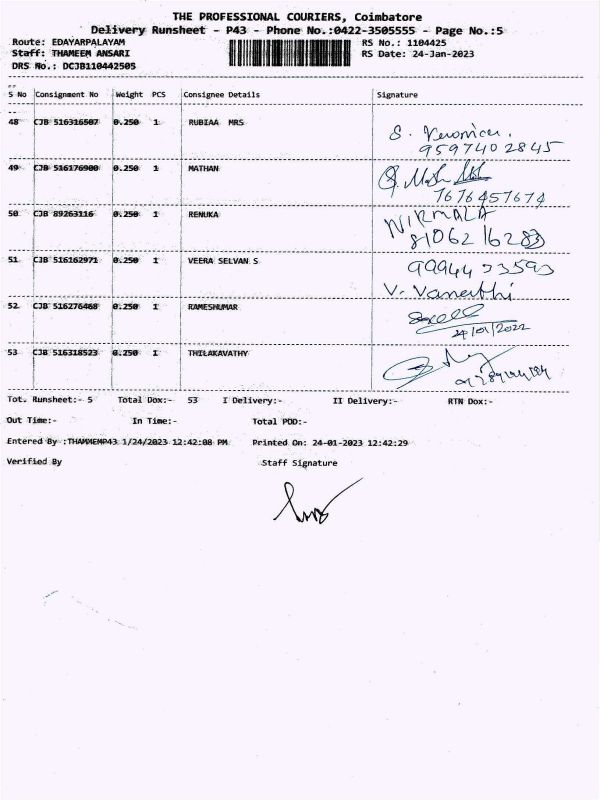 THE PROFESSIONAL COURIERS, Coimbatore
Delivery Runsheet - P43 - Phone No.:0422-3505555 - Page No.:5
Route: EDAYARPALAYAM RS No.: 1104425
Staff: THAMEEM ANSARI RS Date: 24-Jan-2023
DRS No.: DCJB110442505
S No Consignment No Weight PCS Consignee Details Signature
48 CJB 516316507 0.250 1 RUBIAA MRS
S. Veronica.
9597402845
49 CJB 516176900 0.250 1 MATHAN
7676457674
50 CJB 89263116 0.250 1 RENUKA NIRMALA
81062 16283
51 CJB 516162971 0.250 1 VEERA SELVAN S
99944 33593
V. Vanathi
52 CJB 516276468 0.250 1 RAMESHUMAR
24/01/2022
53 CJB 516318523 0.250 1 THILAKAVATHY
Tot. Runsheet:- 5 Total Dox:- 53 I Delivery:- II Delivery:- RTN Dox:-
Out Time:- In Time:- Total POD:-
Entered By :THAMMEMP43 1/24/2023 12:42:08 PM Printed On: 24-01-2023 12:42:29
Verified By Staff Signature